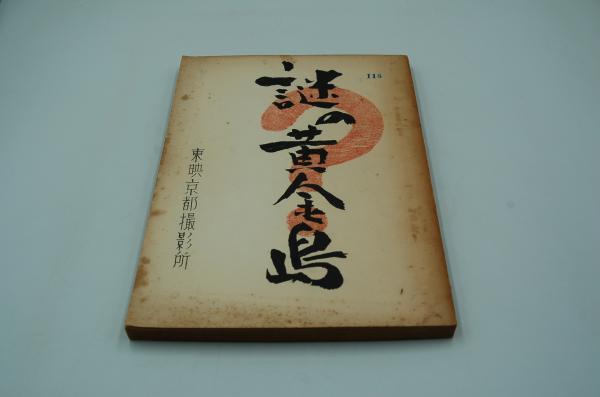 118
謎の黄金島
東映京都撮影所